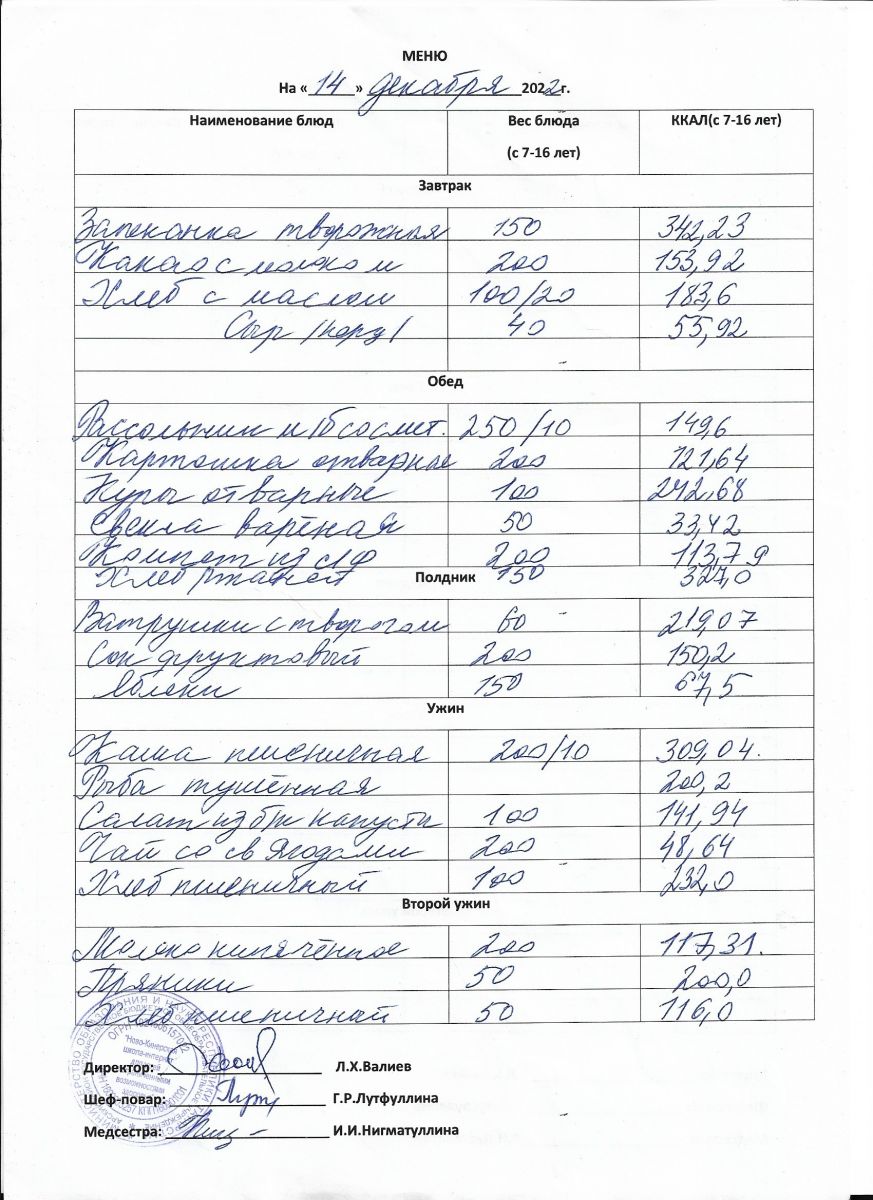 МЕНЮ
На « 14 » декабря 2022 г.
Наименование блюд Вес блюда ККАЛ(с 7-16 лет)
(с 7-16 лет)
Завтрак
Запеканка творожная 150 342,23
Какао с молоком 200 153,92
Хлеб с маслом 100/20 183,6
Сыр /порц/ 40 55,92
Обед
Рассольник м/б со смет. 250/10 149,6
Картошка отварные 200 121,64
Куры отварные 100 242,68
Свекла варёная 50 33,42
Компот из с/ф 200 113,79
Хлеб ржаной 150 327,0
Полдник
Ватрушки с творогом 60 219,07
Сок фруктовый 200 150,2
Яблоки 150 67,5
Ужин
Каша пшеничная 200/10 309,04.
Рыба тушённая 200,2
Салат из б/к капусты 100 141,94
Чай со св ягодами 200 48,64
Хлеб пшеничный 100 232,0
Второй ужин
Молоко кипячённое 200 117,31.
Пряники 50 200,0
Хлеб пшеничный 50 116,0
Директор: Л.Х.Валиев
Шеф-повар: Г.Р.Лутфуллина
Медсестра: И.И.Нигматуллина